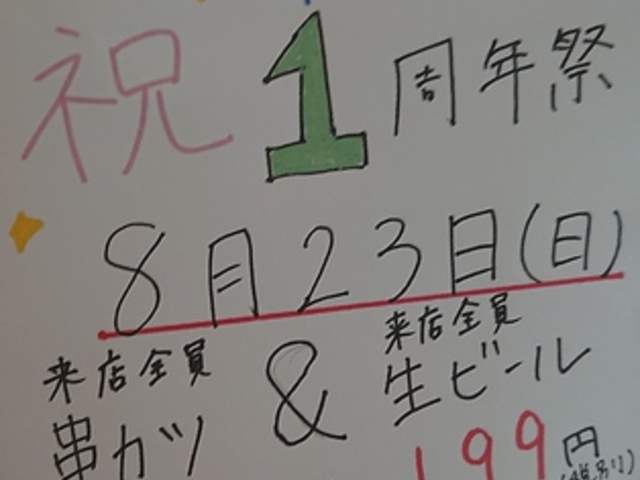 祝1周年祭
8月23日(日)
来店全員 & 来店全員
串カツ 生ビール
199円
(税別)